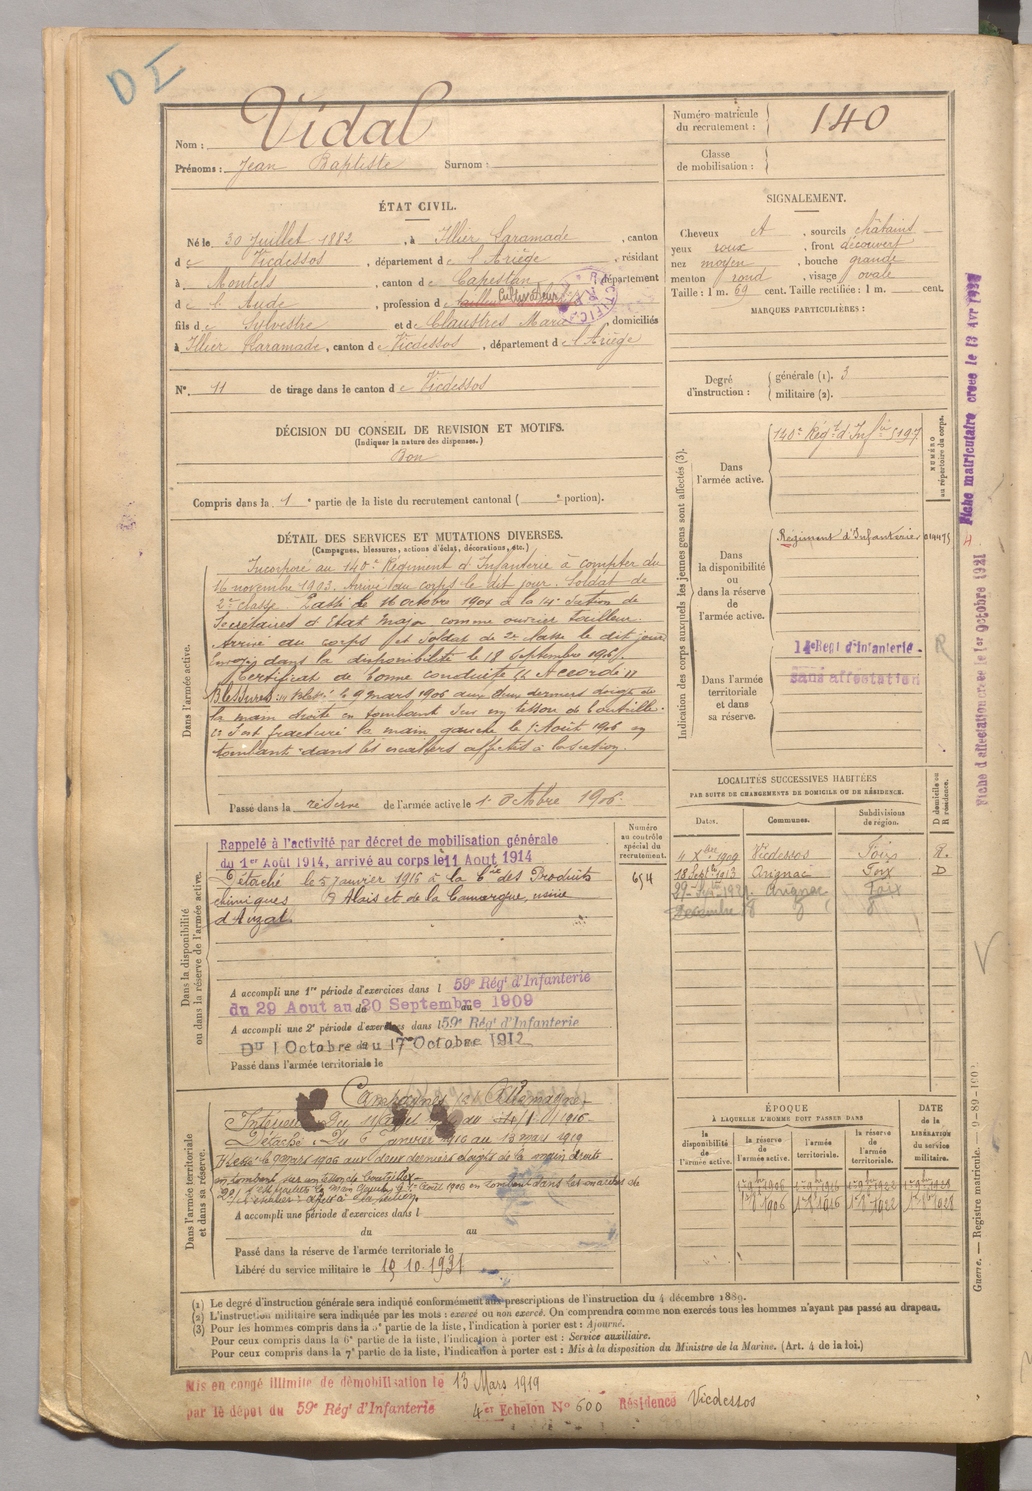 D I
Nom : Vidal
Prénoms : Jean Baptiste Surnom :
Numéro matricule du recrutement : 140
Classe de mobilisation :
ÉTAT CIVIL.
Né le 30 Juillet 1882, à Illier Laramade, canton
de Vicdessos, département de l'Ariège, résidant
à Montels, canton de Capestan, département
de l'Aude, profession de Cultivateur
fils de Sylvestre et de Claustres Maria, domiciliés
à Illier Laramade, canton de Vicdessos, département de l'Ariège
N° 11 de tirage dans le canton de Vicdessos
SIGNALEMENT.
Cheveux et, sourcils châtains
yeux roux, front découvert
nez moyen, bouche grande
menton rond, visage ovale
Taille : 1 m. 69 cent. Taille rectifiée : 1 m. cent.
MARQUES PARTICULIÈRES :
Degré d'instruction : générale (1). 3
militaire (2).
DÉCISION DU CONSEIL DE REVISION ET MOTIFS.
(Indiquer la nature des dispenses.)
Bon
Compris dans la 1e partie de la liste du recrutement cantonal ( e portion).
DÉTAIL DES SERVICES ET MUTATIONS DIVERSES.
(Campagnes, blessures, actions d'éclat, décorations, etc.)
Dans l'armée active.
Incorporé au 140e Régiment d'Infanterie à compter du
16 novembre 1903. Arrivé au corps le dit jour. Soldat de
2e classe. Passé le 16 octobre 1904 à la 14e Section de
Secrétaires d'Etat Major comme ouvrier tailleur.
Arrivé au corps et soldat de 2e classe le dit jour
Envoyé dans la disponibilité le 18 septembre 1906.
Certificat de bonne conduite "Accordé"
Blessures : Blessé le 9 mars 1906 aux deux derniers doigts de
la main droite en tombant sur un tesson de bouteille.
2e S'est fracturé la main gauche le 1er Août 1906 en
tombant dans les escaliers affectés à la section.
Passé dans la réserve de l'armée active le 1er Octobre 1906.
Indication des corps auxquels les jeunes gens sont affectés (3).
NUMÉRO au répertoire du corps.
Dans l'armée active.
140e Régt d'Infie 5197
Dans la disponibilité ou dans la réserve de l'armée active.
Régiment d'Infanterie 014475
Dans l'armée territoriale et dans sa réserve.
14e Régt d'Infanterie
sans affectation
R
LOCALITÉS SUCCESSIVES HABITÉES
PAR SUITE DE CHANGEMENTS DE DOMICILE OU DE RÉSIDENCE.
Dates. Communes. Subdivisions de région. D domicile ou R résidence.
4 Xbre 1909 Vicdessos Foix R.
18 Sept 1913 Arignac Foix D
Arignac Foix
Décembre
Dans la disponibilité ou dans la réserve de l'armée active.
Numéro au contrôle spécial du recrutement.
654
Rappelé à l'activité par décret de mobilisation générale
du 1er Août 1914, arrivé au corps le 11 Aout 1914
Détaché le 5 Janvier 1916 à la Cie des Produits
chimiques d'Alais et de la Camargue, usine
d'Auzat.
A accompli une 1re période d'exercices dans l 59e Régt d'Infanterie
du 29 Aout au 20 Septembre 1909
A accompli une 2e période d'exercices dans l 59e Régt d'Infanterie
Du 1 Octobre au 17 Octobre 1912
Passé dans l'armée territoriale le
Dans l'armée territoriale et dans sa réserve.
Campagnes Allemagne
Intérieur Du
Détaché : Du 6 Janvier 1916 au 13 mars 1919
Blessé le 9 mars 1906 aux deux derniers doigts de la main droite
en tombant sur un tesson de bouteille.
A accompli une période d'exercices dans l
du au
Passé dans la réserve de l'armée territoriale le
Libéré du service militaire le 10.10.1931
ÉPOQUE
À LAQUELLE L'HOMME DOIT PASSER DANS
la disponibilité de l'armée active. la réserve de l'armée active. l'armée territoriale. la réserve de l'armée territoriale.
DATE DE LA LIBÉRATION du service militaire.
1er 9bre 1906 1er 9bre 1916 1er 9bre 1922 1er 9bre 1928
1er 8bre 1906 1er 8bre 1916 1er 8bre 1922 1er 8bre 1928
(1) Le degré d'instruction générale sera indiqué conformément aux prescriptions de l'instruction du 4 décembre 1889.
(2) L'instruction militaire sera indiquée par les mots : exercé ou non exercé. On comprendra comme non exercés tous les hommes n'ayant pas passé au drapeau.
(3) Pour les hommes compris dans la 5e partie de la liste, l'indication à porter est : Ajourné.
Pour ceux compris dans la 6e partie de la liste, l'indication à porter est : Service auxiliaire.
Pour ceux compris dans la 7e partie de la liste, l'indication à porter est : Mis à la disposition du Ministre de la Marine. (Art. 4 de la loi.)
Mis en congé illimité de démobilisation le 13 Mars 1919
par le dépôt du 59e Régt d'Infanterie 4er Echelon No 600 Résidence Vicdessos
Fiche matriculaire créée le 13 Avr
Fiche d'affectation créée le 1er Octobre 1921
Guerre. — Registre matricule. — 9-89-1902.